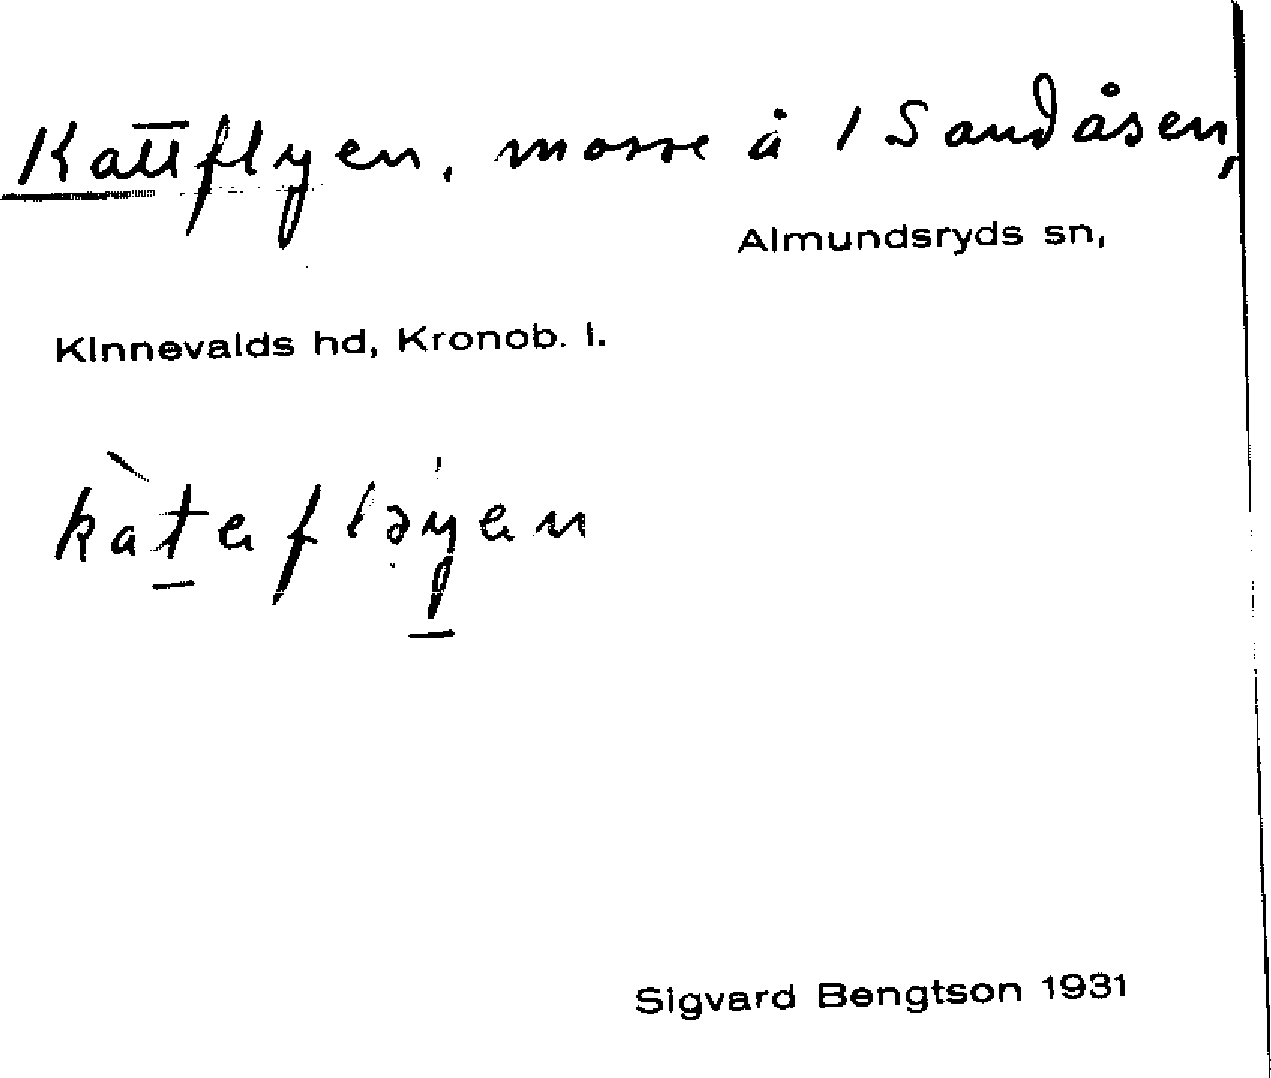 Kattflyen, mosse å 1 Sandåsen,
Almundsryds sn,
Kinnevalds hd, Kronob. l.
kàtaflǝyen
Sigvard Bengtson 1931